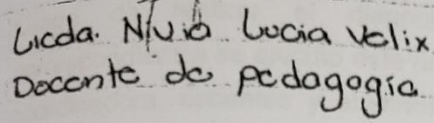 Licda. Nivia Lucia Velix
Docente de pedagogía